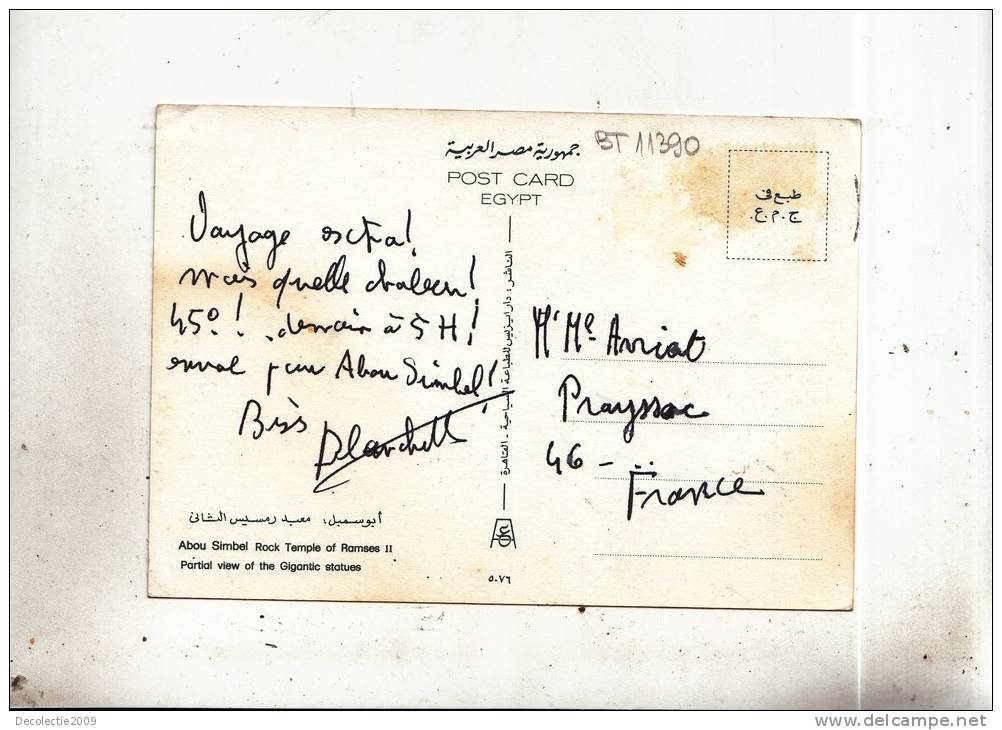 جمهورية مصر العربية
BT 11390
POST CARD
EGYPT
طبع فى
ج.م.ع.
Voyage extra!
mais quelle chaleur!
45°! demain à 5 H!
envol pour Abou Simbel!
Biss
Blanchett
الناشر: دار ايزيس للطباعة السياحية - القاهرة
Mr Me Arriat
Prayssac
46 - ..
France
أبو سمبل: معبد رمسيس الثانى
Abou Simbel Rock Temple of Ramses II
Partial view of the Gigantic statues
٥٠٧٦
Decolectie2009
www.delcampe.net